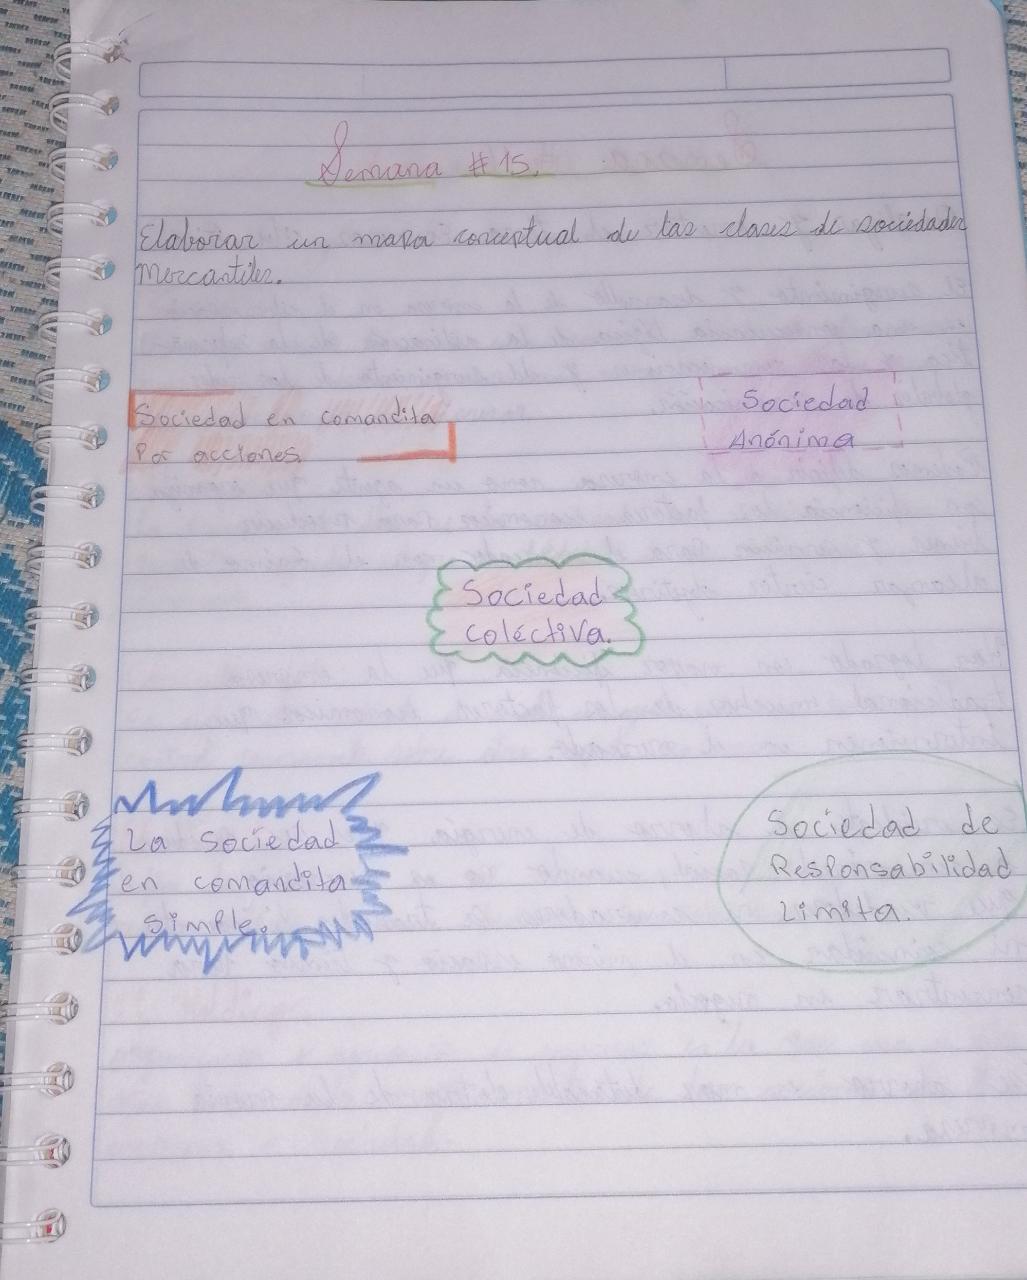 Semana #15.
Elaborar un mapa conceptual de las clases de sociedades
Mercantiles.
Sociedad en comandita
Por acciones.
Sociedad
Anónima
Sociedad
coléctiva.
La Sociedad
en comandita
simple.
Sociedad de
Responsabilidad
Limita.